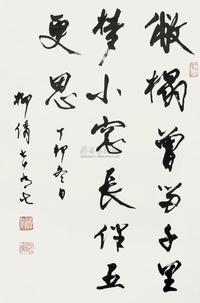 敝榻曾留千里
梦小窗长伴五
更思
丁卯冬日
柳倩